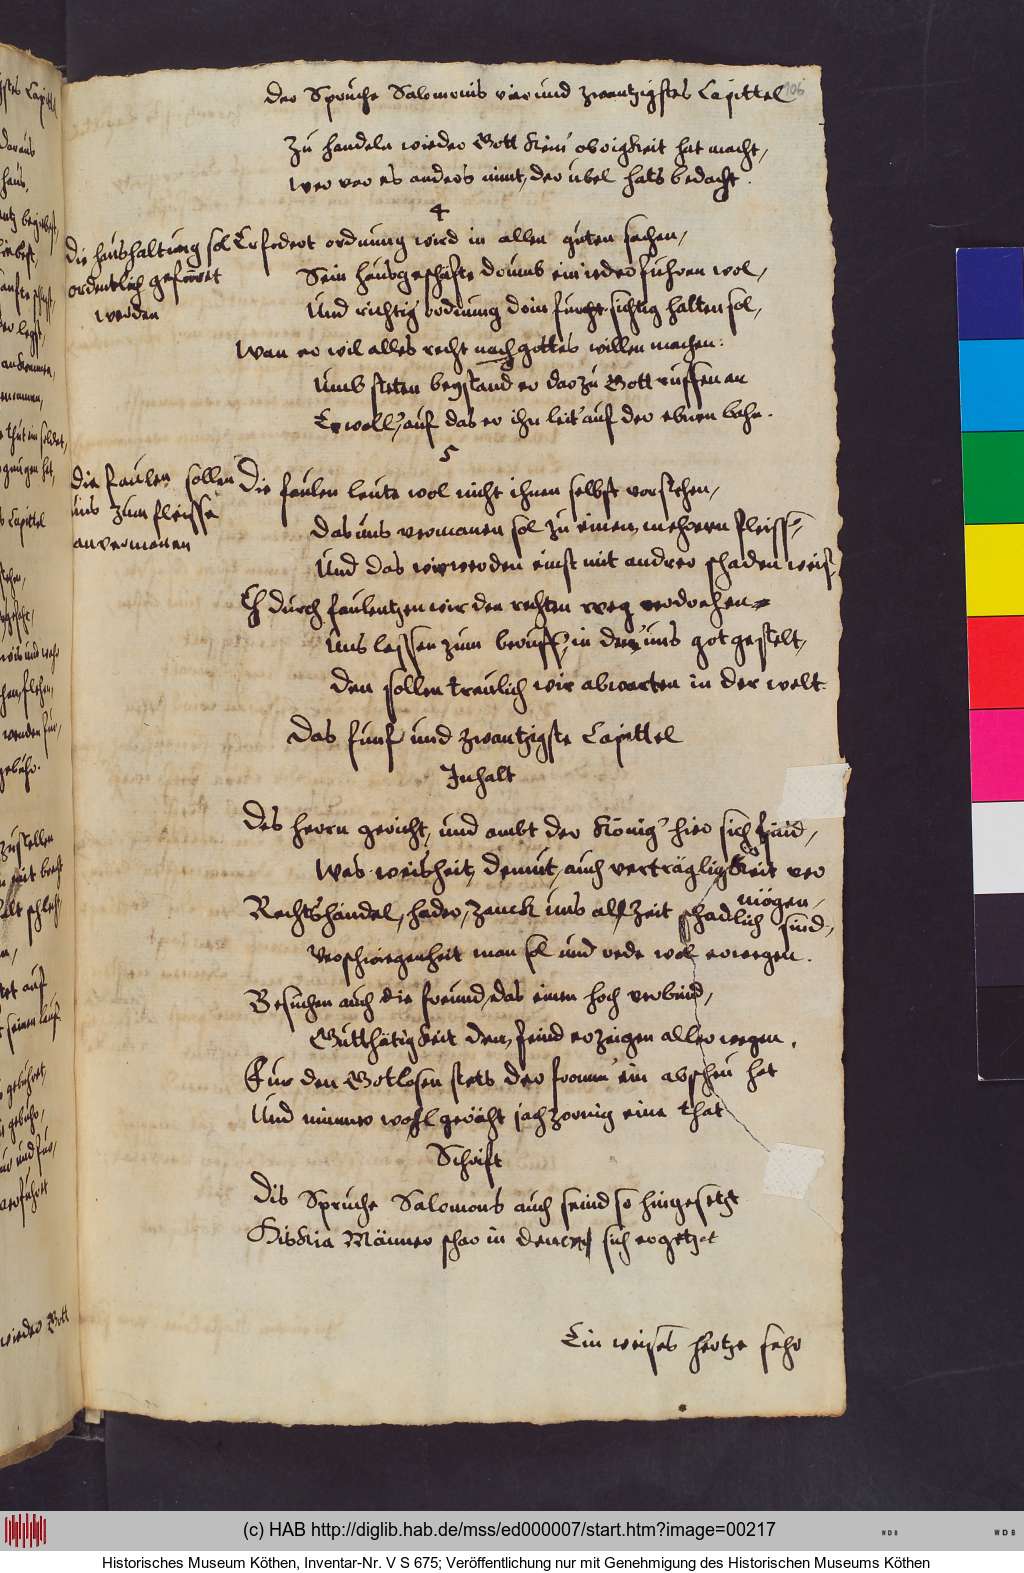 Der Spruche Salomonis vier und zwantzigstes Capittel
106
Zu handeln wieder Gott kein obrigkeit hat macht,
Wer vor es anders nimt, der ubel hats bedacht.
4
Die haushaltung sol
ordentlich gefüret
werden
Erfodert ordnung wird in allen guten sachen,
Sein hausgeschäfte drumb ein ieder fuhren wol,
Und richtig ordnung drin fursichtig halten sol,
Wan er wil alles recht nach gottes willen machen:
Umb steten beystand er darzu Gott ruffen an
Er woll', auf das er ihn leit' auf der ebnen bahn.
5
Die faulen sollen
uns zum fleisse
anvermanen
Die faulen leute wol nicht ihnen selbst vorstehen,
Das uns vermanen sol zu einem mehrern fleiss',
Und das wir werden einst mit andrer schaden weis',
Eh durch faulentzen wir den rechten weg verdrehen
Uns lassen zum beruff', in den uns got gestelt,
Den sollen treulich wir abwarten in der welt.
Das funf und zwantzigste Capittel
Inhalt
Des herrn gericht, und ambt der König' hier sich find,
Was weisheit, demut, auch verträgligkeit ver
mögen,
Rechtshändel, hader, zanck uns alzeit schadlich sind,
Verschwiegenheit man sol und rede wol erwegen.
Besuchen auch die freund, das einen hoch verbind,
Gutthätigkeit dem feind erzeigen allerwegen,
Fur den Gotlosen stets der fromm' ein abscheu hat
Und nimmer wohl geräht jachzornig eine that
Schrift
Dis Spruche Salomons auch seind so hingesetzt
Hiskia Männer schar in denen sich ergetzet
Ein weises hertze sehr
wieder Gott
(c) HAB http://diglib.hab.de/mss/ed000007/start.htm?image=00217
Historisches Museum Köthen, Inventar-Nr. V S 675; Veröffentlichung nur mit Genehmigung des Historischen Museums Köthen